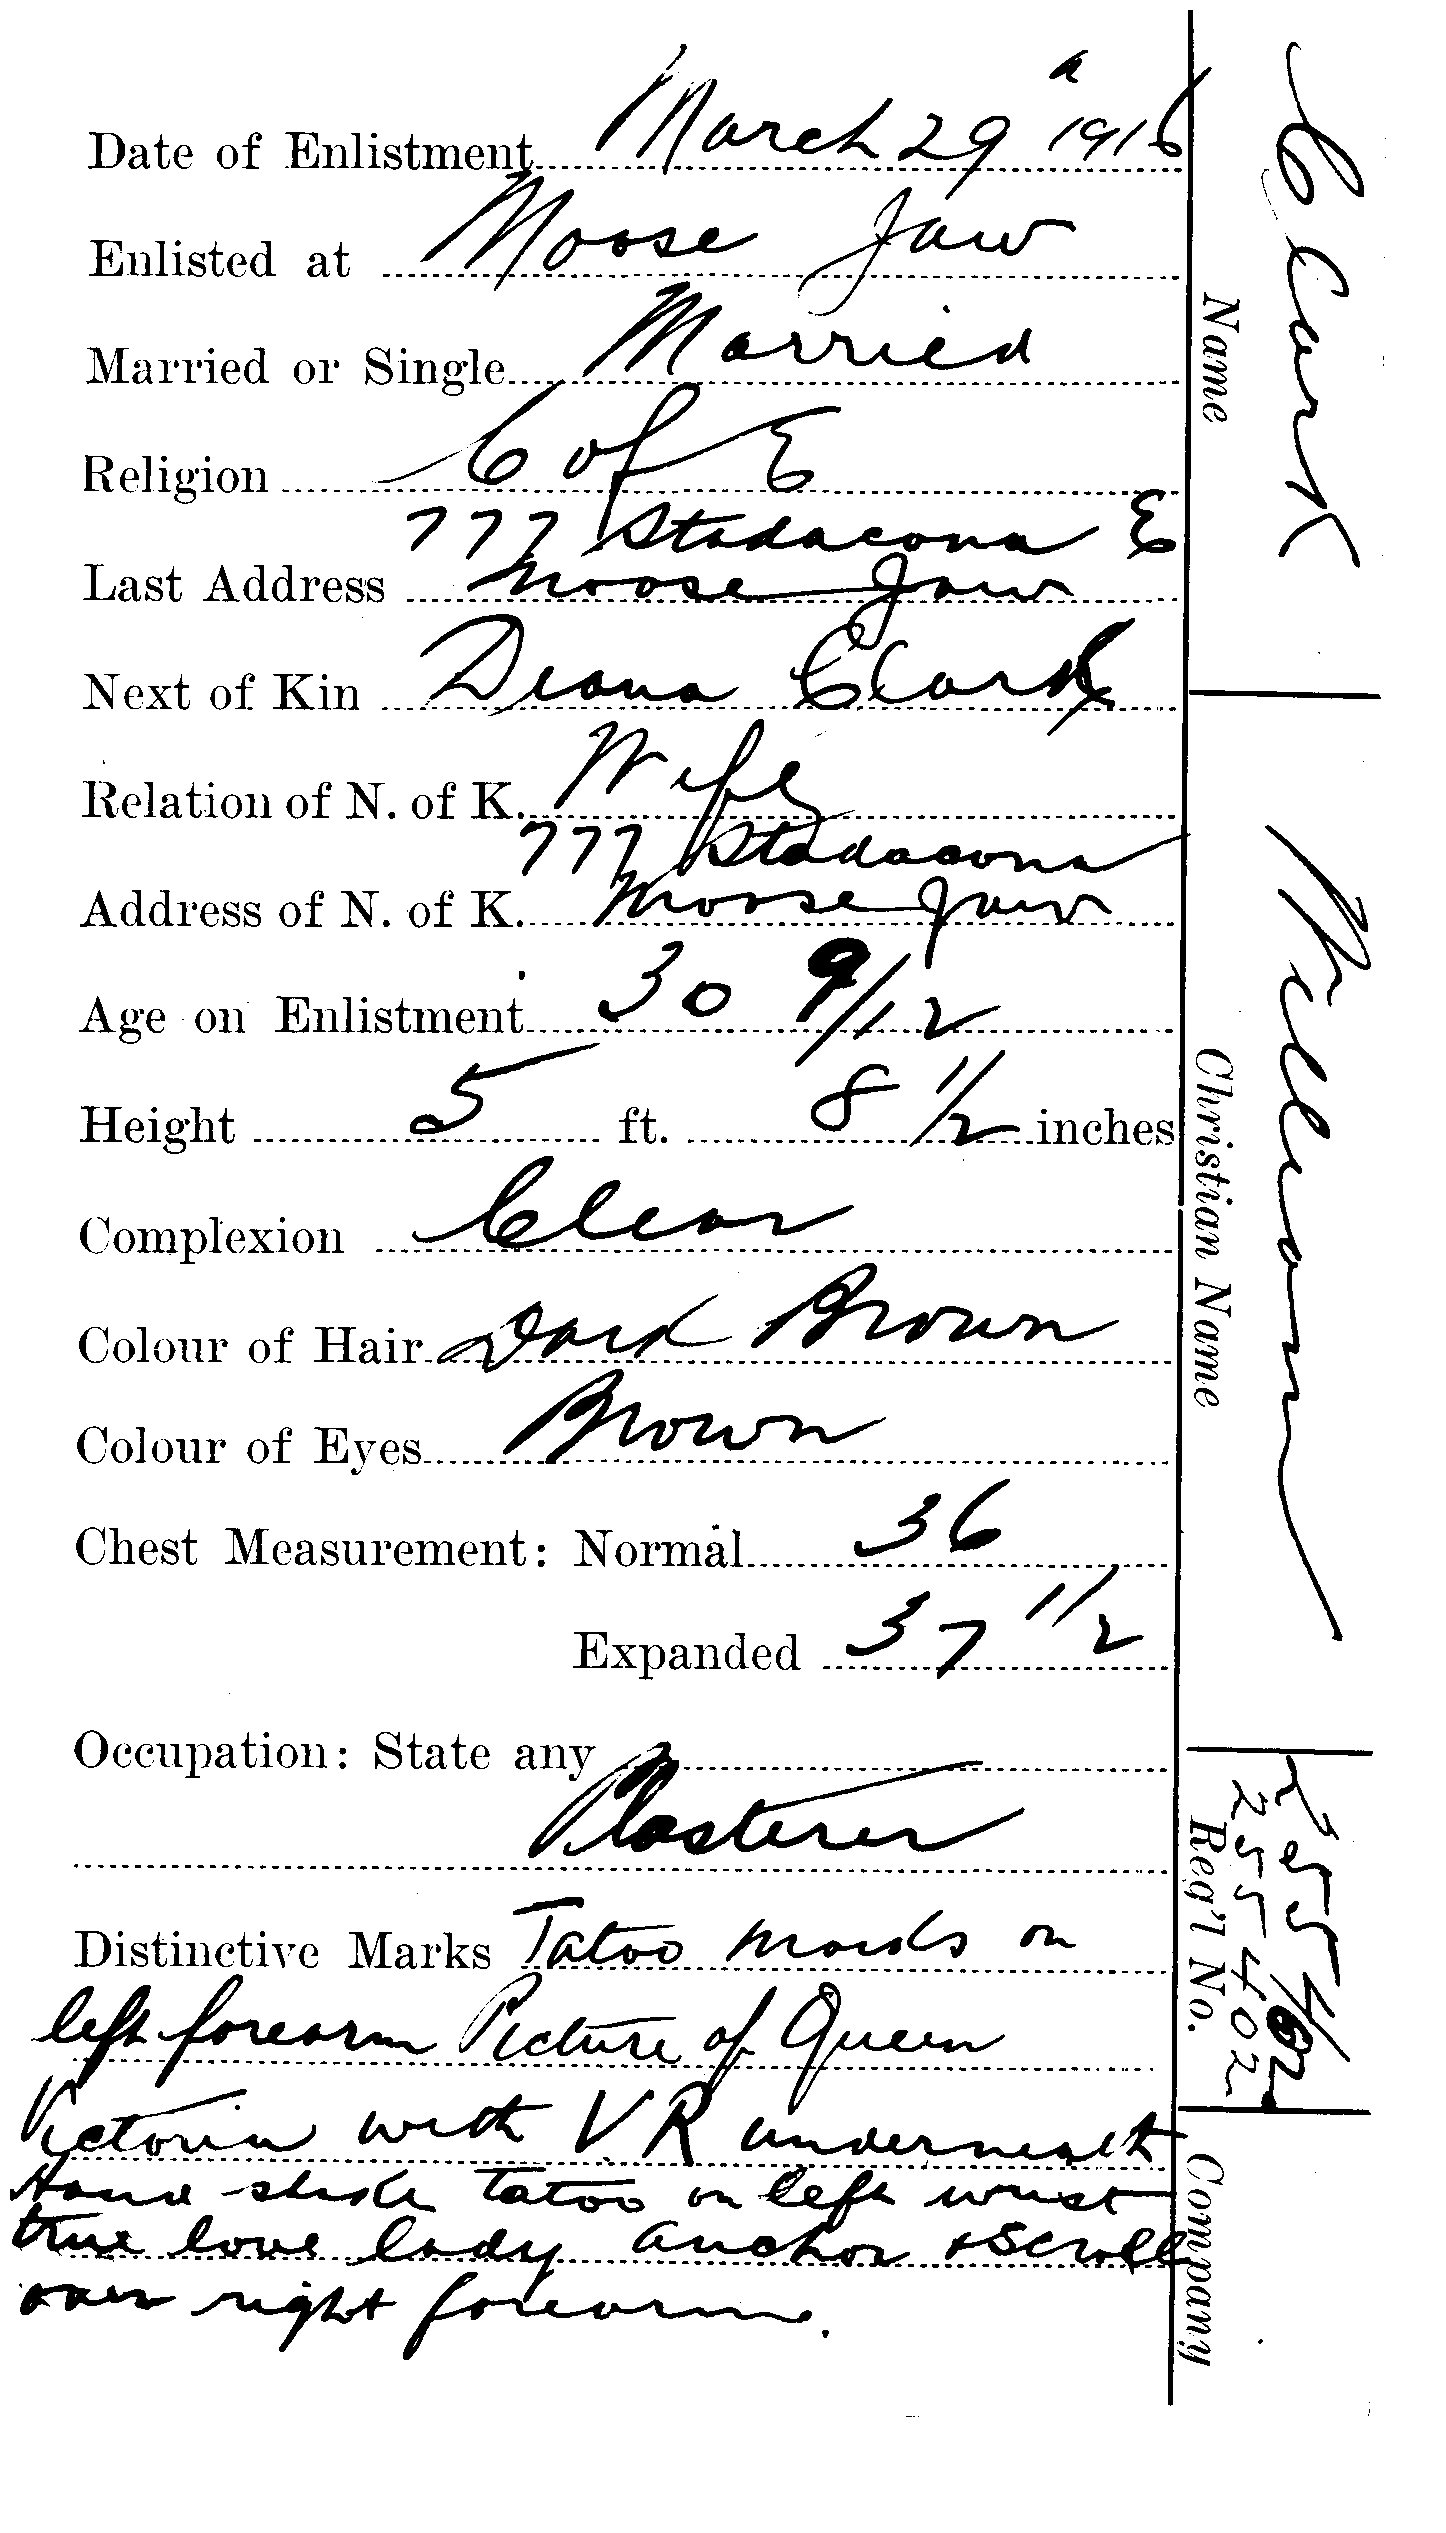 a
Date of Enlistment March 29 1916
Enlisted at Moose Jaw
Married or Single Married
Religion C of E
777 Stadacona E
Last Address Moose Jaw
Next of Kin Diana Clark
Relation of N. of K. Wife
777 Stadacona
Address of N. of K. Moose Jaw
Age on Enlistment 30 9/12
Height 5 ft. 8 1/2 inches
Complexion Clear
Colour of Hair Dark Brown
Colour of Eyes Brown
Chest Measurement: Normal 36
Expanded 37 1/2
Occupation: State any
Plasterer
Distinctive Marks Tatoo marks on
left forearm Picture of Queen
Victoria with V.R underneath
Hand shake tatoo on left wrist
true love lady anchor & Scroll
over right forearm.
Clark
Name
William
Christian Name
255402
255402
Reg'l No.
Company